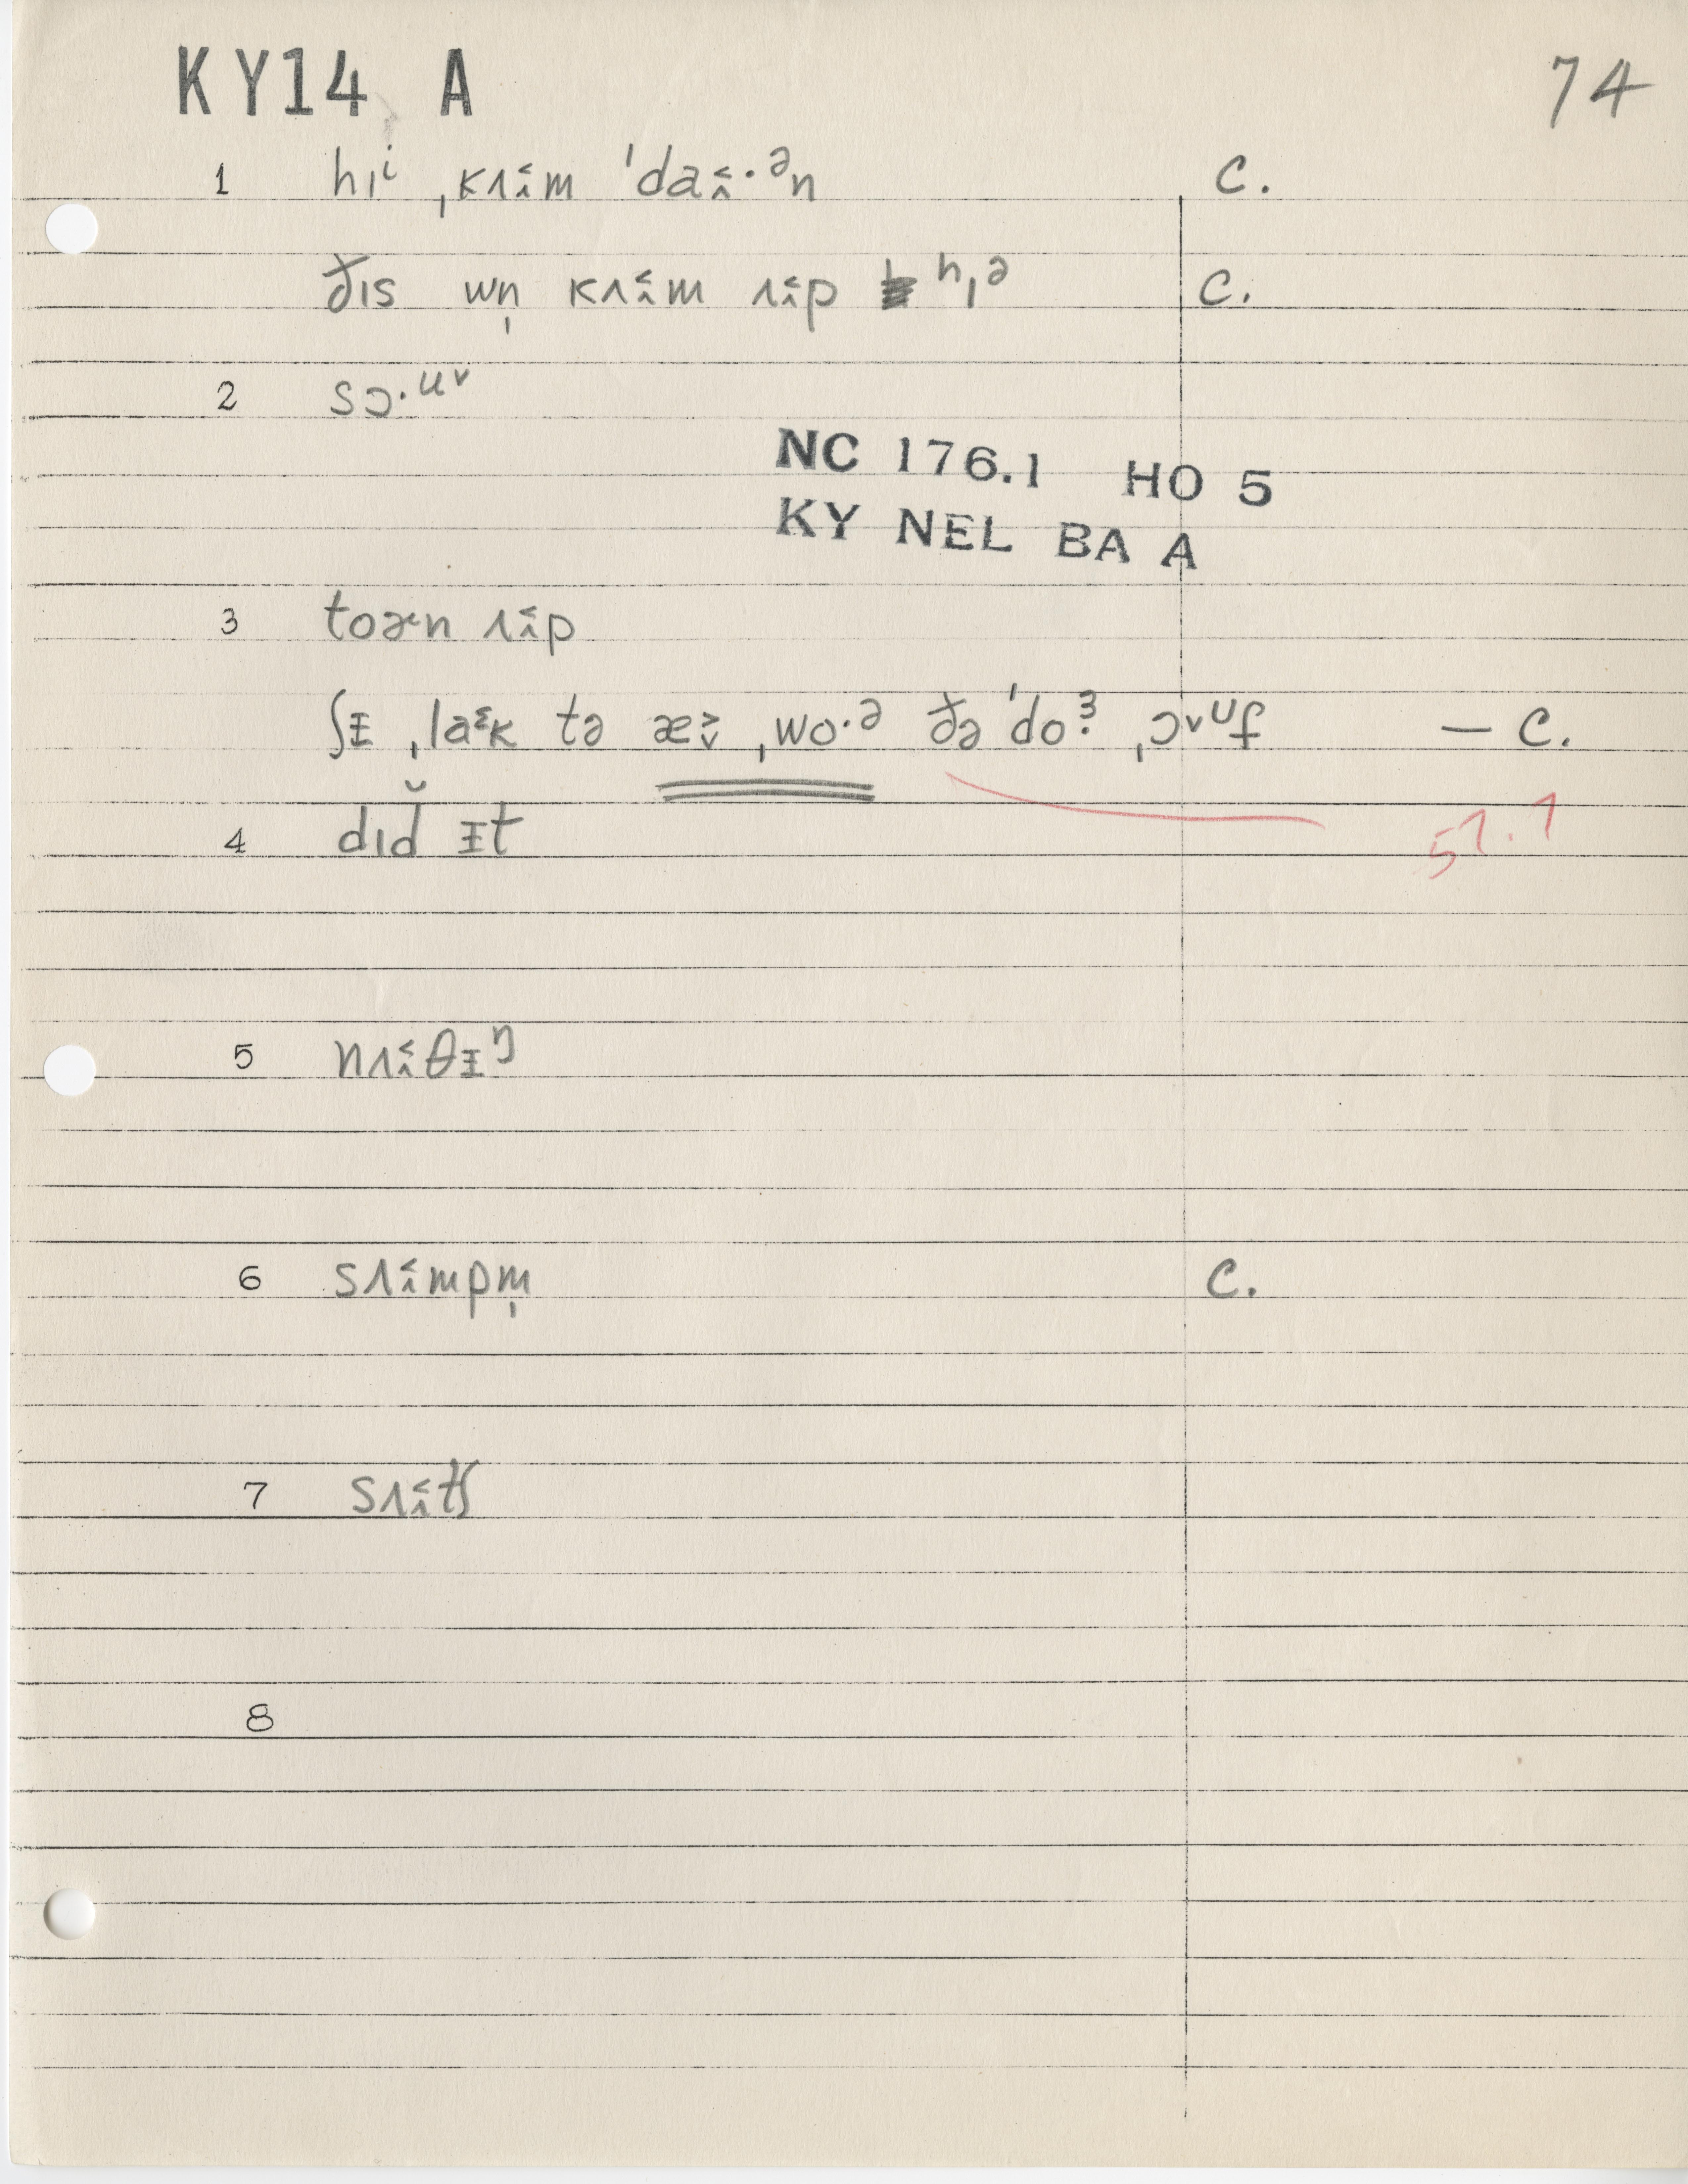 KY14 A
74
1 hɪⁱ ˌkʌɪ̂m ˈdaɪ̂·ᵊn C.
ðɪs wn̩ kʌɪ̂m ʌɪ̂p hɪə C.
2 sɔ·ᵘ˅
NC 176.1 HO 5
KY NEL BA A
3 toɚn ʌɪ̂p
ʃɪ ˌlaᵋk tə æ ˌwo·ə ðə ˈdo ˌɔ˅ᵁf — C.
4 dɪd̆ ɪt 51.1
5 nʌɪ̂θɪᵑ
6 sʌɪ̂mpm̩ C.
7 sʌɪ̂tʃ
8